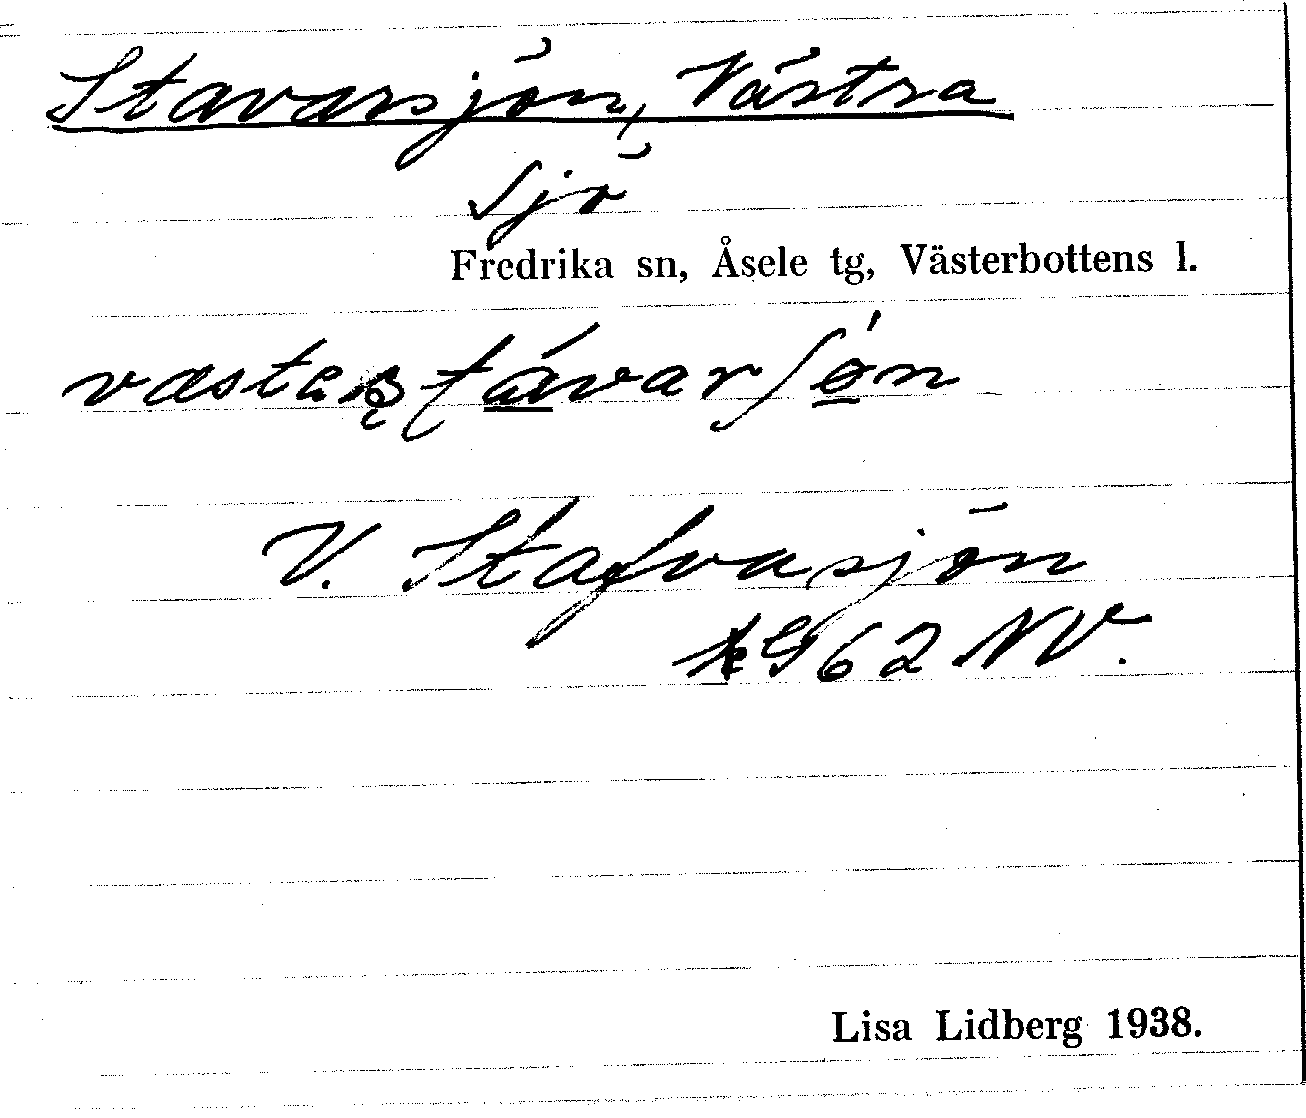 Stavarsjön, Västra
Sjö
Fredrika sn, Åsele tg, Västerbottens l.
V. Stafvasjön
kG 62 NV.
Lisa Lidberg 1938.